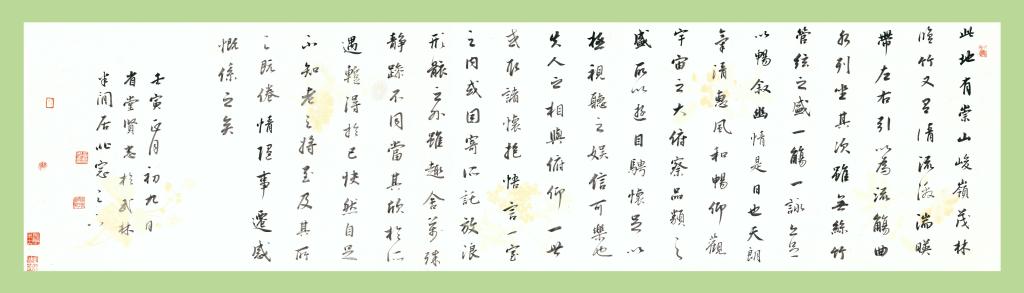 此地有崇山峻嶺茂林
脩竹又有清流激湍暎
帶左右引以為流觴曲
水列坐其次雖無絲竹
管絃之盛一觴一詠亦足
以暢叙幽情是日也天朗
氣清惠風和暢仰觀
宇宙之大俯察品類之
盛所以遊目騁懷足以
極視聽之娛信可樂也
夫人之相與俯仰一世
或取諸懷抱悟言一室
之內或因寄所託放浪
形骸之外雖趣舍萬殊
靜躁不同當其欣於所
遇暫得於己快然自足
不知老之將至及其所
之既倦情隨事遷感
慨係之矣
壬寅正月初九日
省堂賢志於武林
半閒居北窓之下